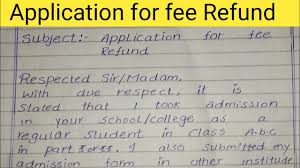 Application for fee Refund
Subject:- Application for fee
Refund
Respected Sir/Madam,
With due respect, it is
stated that I took admission
in your school/college as a
regular student in Class A.B.C
in part . I also submitted my
admission form in other institude